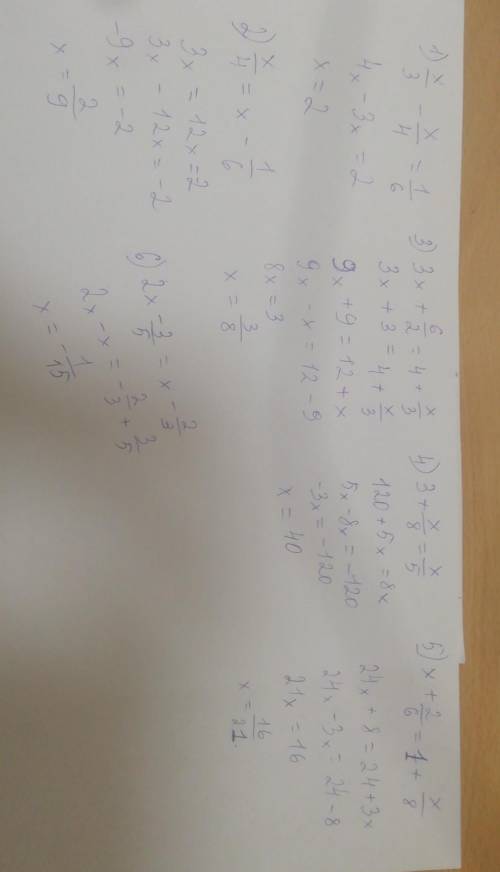 1) x/3 - x/4 = 1/6
4x - 3x = 2
x = 2
2) x/4 = x - 1/6
3x = 12x = -2
3x - 12x = -2
-9x = -2
x = 2/9
3) 3x + 6/2 = 4 + x/3
3x + 3 = 4 + x/3
9x + 9 = 12 + x
9x - x = 12 - 9
8x = 3
x = 3/8
6) 2x - 3/5 = x - 2/3
2x - x = -2/3 + 3/5
x = -1/15
4) 3 + x/8 = x/5
120 + 5x = 8x
5x - 8x = -120
-3x = -120
x = 40
5) x + 2/6 = 1 + x/8
24x + 8 = 24 + 3x
24x - 3x = 24 - 8
21x = 16
x = 16/21.